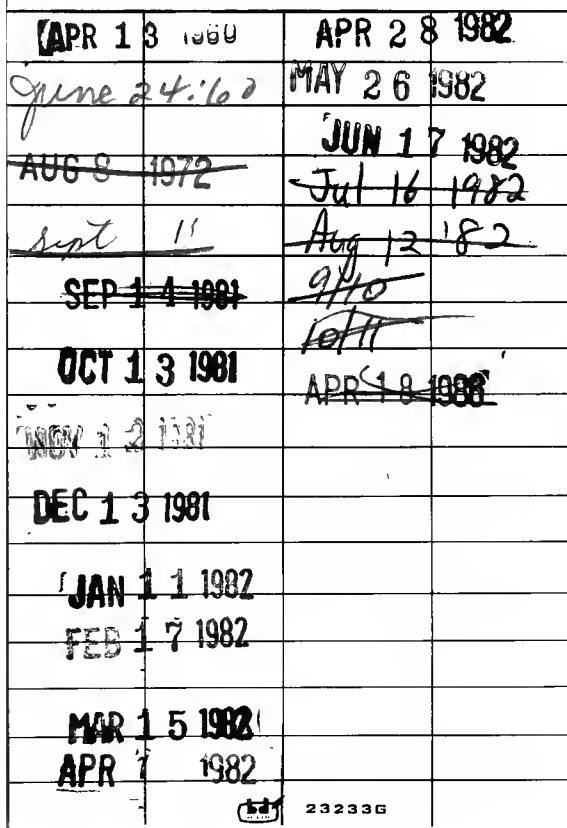 APR 13 1960
June 24'60
AUG 8 1972
sept 11
SEP 14 1981
OCT 13 1981
NOV 12 1981
DEC 13 1981
JAN 11 1982
FEB 17 1982
MAR 15 1982
APR 7 1982
APR 28 1982
MAY 26 1982
JUN 17 1982
Jul 16 1982
Aug 12 '82
9/10
10/11
APR 18 1988
bd 23233G